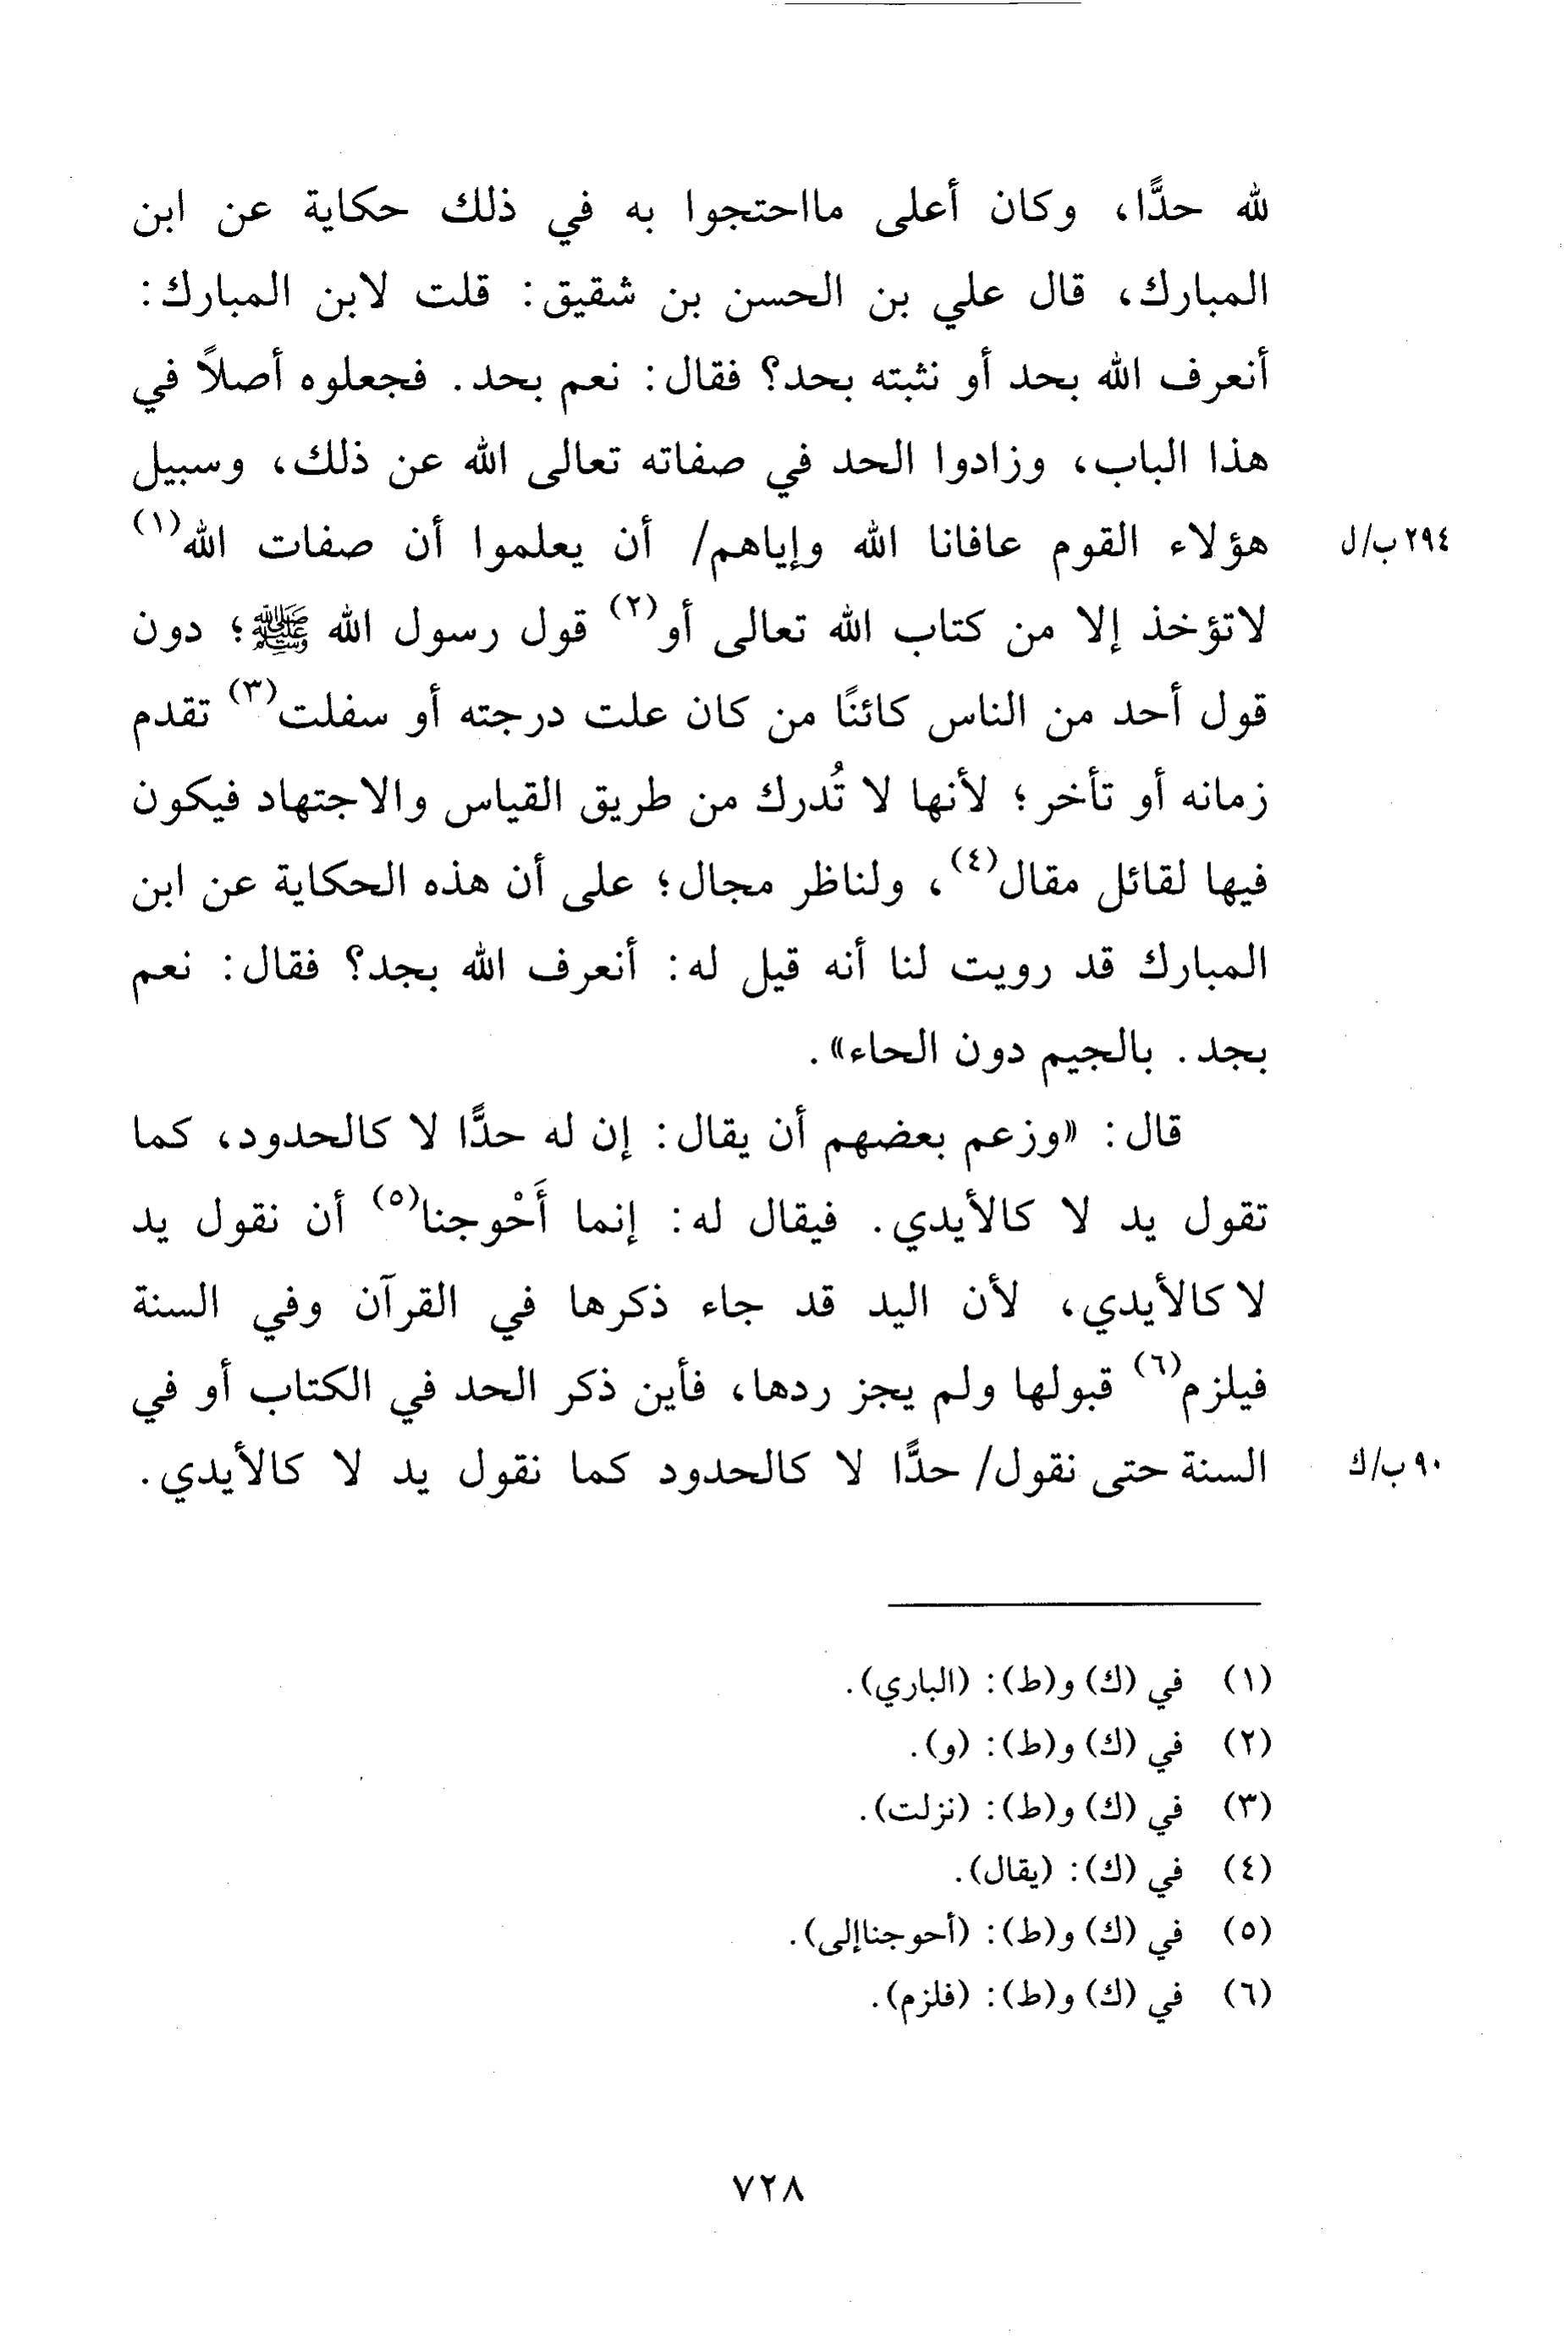 لله حدًّا، وكان أعلى مااحتجوا به في ذلك حكاية عن ابن
المبارك، قال علي بن الحسن بن شقيق: قلت لابن المبارك:
أنعرف الله بحد أو نثبته بحد؟ فقال: نعم بحد. فجعلوه أصلاً في
هذا الباب، وزادوا الحد في صفاته تعالى الله عن ذلك، وسبيل
هؤلاء القوم عافانا الله وإياهم/ أن يعلموا أن صفات الله(١) ٢٩٤ب/ل
لاتؤخذ إلا من كتاب الله تعالى أو(٢) قول رسول الله ﷺ؛ دون
قول أحد من الناس كائنًا من كان علت درجته أو سفلت(٣) تقدم
زمانه أو تأخر؛ لأنها لا تُدرك من طريق القياس والاجتهاد فيكون
فيها لقائل مقال(٤)، ولناظر مجال؛ على أن هذه الحكاية عن ابن
المبارك قد رويت لنا أنه قيل له: أنعرف الله بجد؟ فقال: نعم
بجد. بالجيم دون الحاء».
قال: «وزعم بعضهم أن يقال: إن له حدًّا لا كالحدود، كما
تقول يد لا كالأيدي. فيقال له: إنما أَحْوجنا(٥) أن نقول يد
لا كالأيدي، لأن اليد قد جاء ذكرها في القرآن وفي السنة
فيلزم(٦) قبولها ولم يجز ردها، فأين ذكر الحد في الكتاب أو في
السنة حتى نقول/ حدًّا لا كالحدود كما نقول يد لا كالأيدي. ٩٠ب/ك
(١) في (ك) و(ط): (الباري).
(٢) في (ك) و(ط): (و).
(٣) في (ك) و(ط): (نزلت).
(٤) في (ك): (يقال).
(٥) في (ك) و(ط): (أحوجناإلى).
(٦) في (ك) و(ط): (فلزم).
٧٢٨